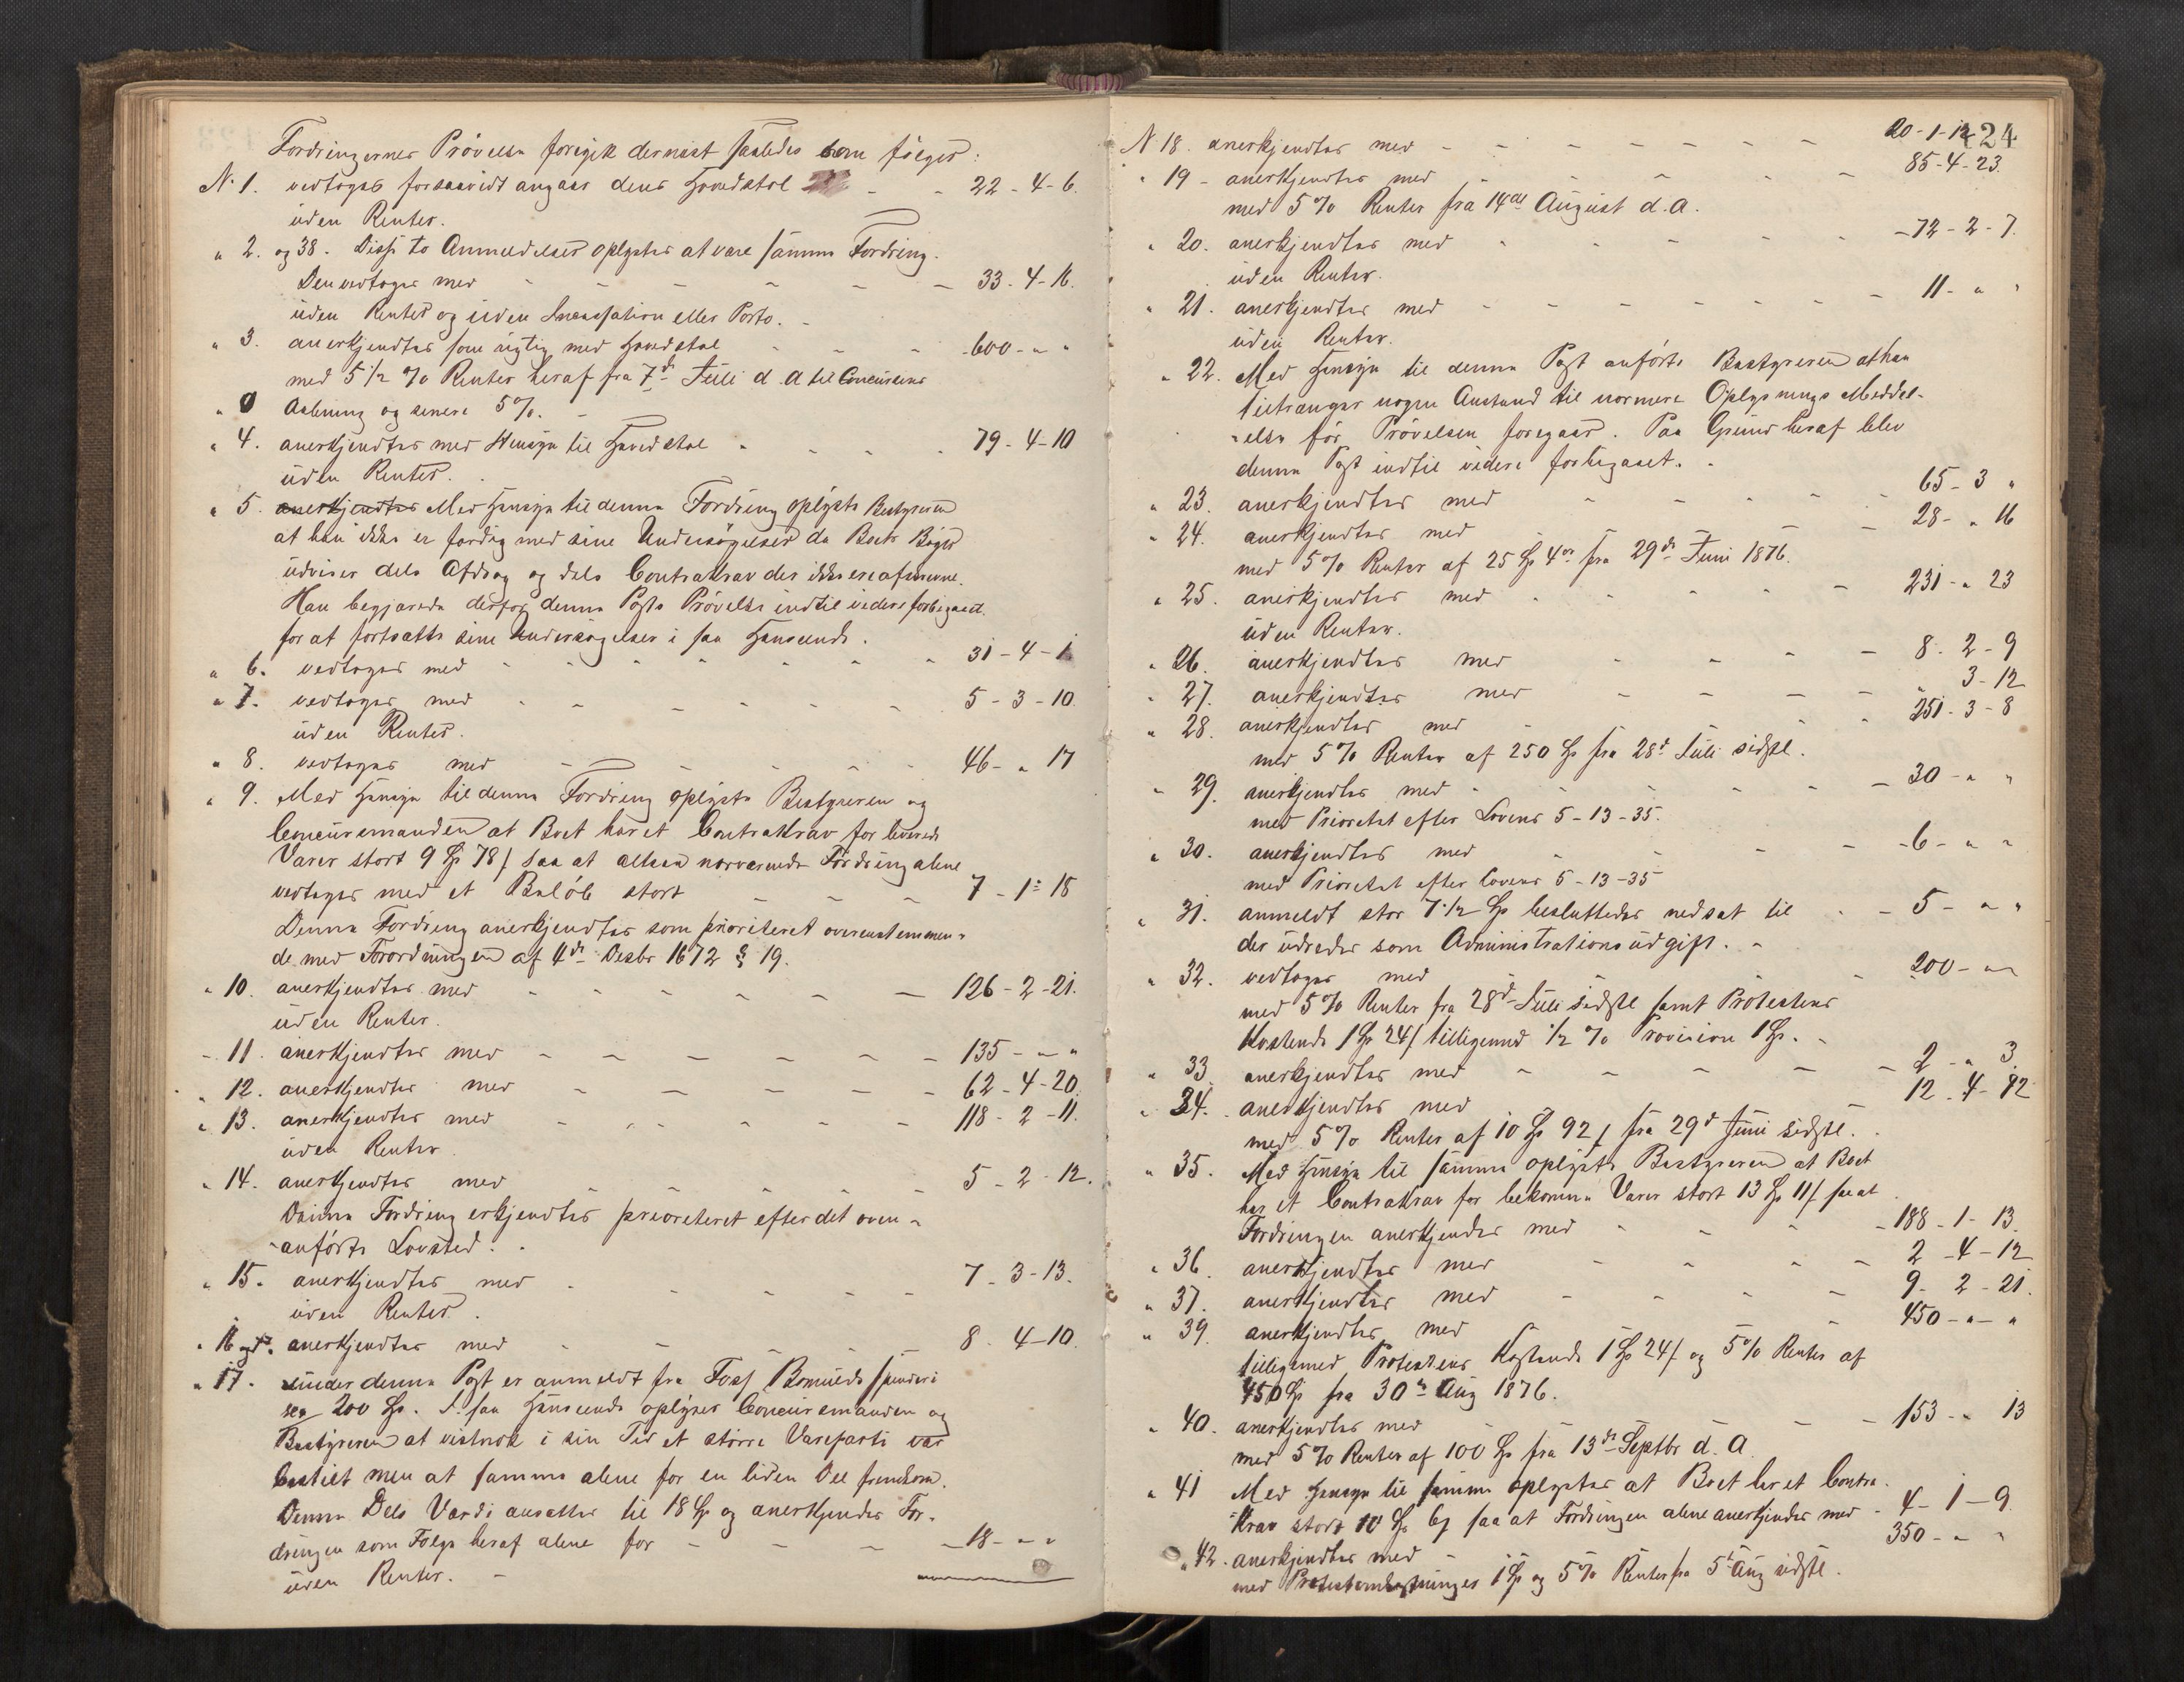 Fordringernes Prövelse foregik dernæst saaledes som fölger:
N. 1. vedtoges forsaavidt angaar dens Hovedstol - - 22 - 4 - 6.
uden Renter.
" 2. og 38. Disse to Anmeldelser oplystes at være samme Fordring.
Den vedtoges med - - - - - 33 - 4 - 16.
uden Renter og uden Incassation eller Porto. -
" 3. anerkjendtes som rigtig med Hovedstol - - - 600 - " "
med 5 1/2 % Renter heraf fra 7de Juli d. A til Concursens
" Aabning og senere 5%. -
" 4. anerkjendtes med Hensyn til Hovedstol - - - 79 - 4 - 10
uden Renter.
" 5. anerkjendtes Med Hensyn til denne Fordring oplyste Bestyreren
at han ikke er færdig med sine Undersögelser da Boets Böger
udviser dels Afdrag og dels Contrakrav der ikke ere afskrevne.
Han begjærede derfor denne Posts Prövelse indtil videre forbigaaet
for at fortsætte sine Undersögelser i saa Henseende.
" 6. vedtoges med - - - - - - 31 - 4 - 1
" 7. vedtoges med - - - - - 5 - 3 - 10.
uden Renter.
" 8. vedtoges med - - - - - 46 - " 17
" 9. Med Hensyn til denne Fordring oplyste Bestyreren og
Concursmanden at Boet har et Contrakrav for leverede
Varer stort 9 Sp 78 s saa at altsaa nærværende Fordring alene
vedtages med et Belöb stort - - - 7 - 1 - 18
Denne Fordring anerkjendtes som prioriteret overensstemmen-
de med Forordningen af 4de Decbr 1672 § 19.
" 10. anerkjendtes med - - - - - - 126 - 2 - 21.
uden Renter.
" 11. anerkjendtes med - - - - - - 135 - " "
" 12. anerkjendtes med - - - - - 62 - 4 - 20.
" 13. anerkjendtes med - - - - - 118 - 2 - 11.
uden Renter.
" 14. anerkjendtes med - - - - - 5 - 2 - 12.
Denne Fordring erkjendtes prioriteret efter det oven-
-anförte Lovsted.
" 15. anerkjendtes med - - - - - 7 - 3 - 13.
uden Renter.
" 16 anerkjendtes med - - - - - 8 - 4 - 10.
" 17. under denne Post er anmeldt fra
200 Sp. I saa Henseende oplyser Concursmanden og
Bestyreren at vistnok i sin Tid et större Vareparti var
bestilt men at samme alene for en liden Del fremkom.
Denne Dels Værdi ansættes til 18 Sp og anerkjendes For-
dringen som Fölge heraf alene for - - - 18 - " "
uden Renter. -
424
N 18. anerkjendtes med - - - - - - 20 - 1 - 12
" 19 - anerkjendtes med - - - - - 85 - 4 - 23.
med 5 % Renter fra 14de August d. A.
" 20. anerkjendtes med - - - - - 72 - 2 - 7.
uden Renter.
" 21. anerkjendtes med - - - - - - 11 - " "
uden Renter.
" 22. Med Hensyn til denne Post anförte Bestyreren at han
tiltrænger nogen Anstand til nærmere Oplysnings Meddel-
-else för Prövelsen foregaar. Paa Grund heraf blev
denne Post indtil videre forbigaaet. -
" 23. anerkjendtes med - - - - 65 - 3 "
" 24. anerkjendtes med - - - - 28 - " 16
med 5 % Renter af 25 Sp 4 ort fra 29de Juni 1876.
" 25. anerkjendtes med - - - - - 231 - " 23
uden Renter.
" 26. anerkjendtes med - - - - 8 - 2 - 9
" 27. anerkjendtes med - - - - " 3 - 12
" 28. anerkjendtes med - - - 251 - 3 - 8
med 5 % Renter af 250 Sp fra 28de Juli sidstl.
" 29. anerkjendtes med - - - - - 30 - " "
med Prioritet efter Lovens 5 - 13 - 35.
" 30. anerkjendtes med - - - - 6 - " "
med Prioritet efter Lovens 5 - 13 - 35
" 31. anmeldt stor 7 1/2 Sp besluttedes nedsat til - - 5 - " "
der udredes som Administrationsudgift. -
" 32. vedtoges med - - - - - 200 - " "
med 5 % Renter fra 28de Juli sidstl samt Protestens
Kostende 1 Sp 24 s tilligemed 1/2 % Provision 1 Sp. -
" 33. anerkjendtes med - - - - - 2 - " 3.
" 34. anerkjendtes med - - 12 - 4 - 82
med 5 % Renter af 10 Sp 92 s fra 29de Juni sidstl.
" 35. Med Hensyn til samme oplyste Bestyreren at Boet
har et Contrakrav for bekomne Varer stort 13 Sp 11 s saa at
Fordringen anerkjendes med - - - - 188 - 1 - 13.
" 36. anerkjendtes med - - - - 2 - 4 - 12
" 37. anerkjendtes med - - - - 9 - 2 - 21.
" 39. anerkjendtes med - 450 - " "
tilligemed Protestens Kostende 1 Sp 24 s og 5 % Renter af
450 Sp fra 30te Aug 1876.
" 40. anerkjendtes med - - - - - 153 - " 13
med 5 % Renter af 100 Sp fra 13de Septbr d. A
" 41 Med Hensyn til samme oplystes at Boet har et Contra-
-krav stort 10 Sp 6 s saa at Fordringen alene anerkjendes med - 4 - 1 - 9.
" 42. anerkjendtes med - 350 - " "
med Protestomkostninger 1 Sp og 5 % Renter fra 5te Aug sidstl.